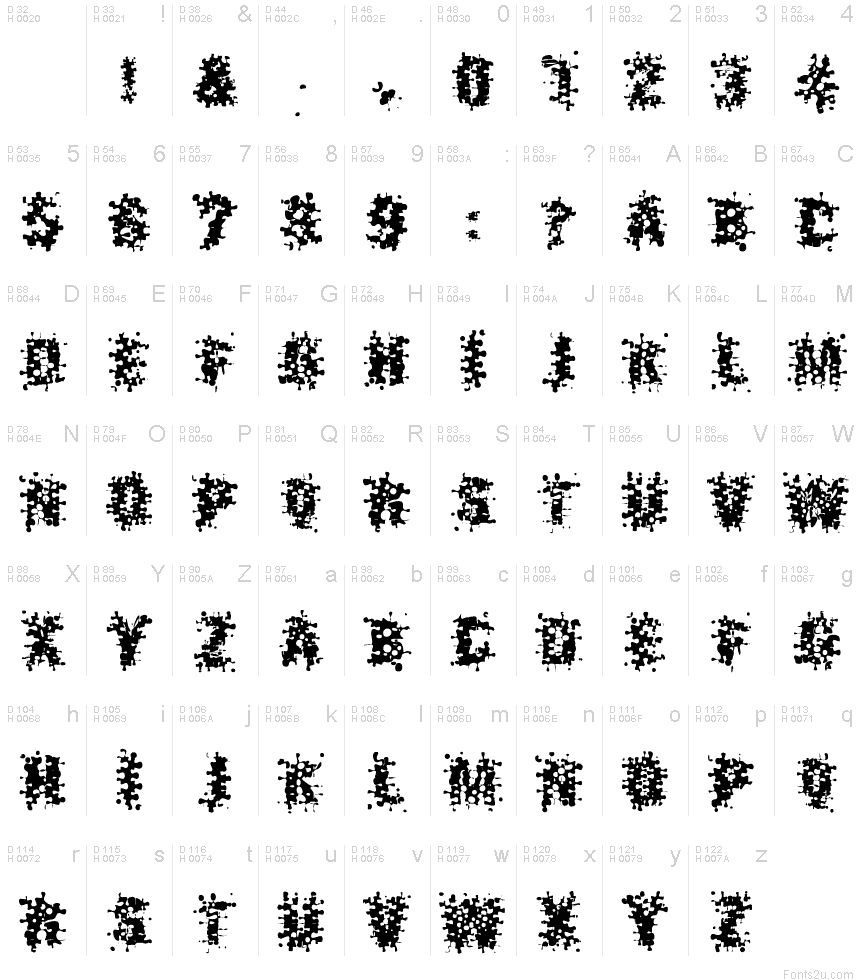 D 32 H 0020
D 33 H 0021 !
D 38 H 0026 &
D 44 H 002C ,
D 46 H 002E .
D 48 H 0030 0
D 49 H 0031 1
D 50 H 0032 2
D 51 H 0033 3
D 52 H 0034 4
! & , . 0 1 2 3 4
D 53 H 0035 5
D 54 H 0036 6
D 55 H 0037 7
D 56 H 0038 8
D 57 H 0039 9
D 58 H 003A :
D 63 H 003F ?
D 65 H 0041 A
D 66 H 0042 B
D 67 H 0043 C
5 6 7 8 9 : ? A B C
D 68 H 0044 D
D 69 H 0045 E
D 70 H 0046 F
D 71 H 0047 G
D 72 H 0048 H
D 73 H 0049 I
D 74 H 004A J
D 75 H 004B K
D 76 H 004C L
D 77 H 004D M
D E F G H I J K L M
D 78 H 004E N
D 79 H 004F O
D 80 H 0050 P
D 81 H 0051 Q
D 82 H 0052 R
D 83 H 0053 S
D 84 H 0054 T
D 85 H 0055 U
D 86 H 0056 V
D 87 H 0057 W
N O P Q R S T U V W
D 88 H 0058 X
D 89 H 0059 Y
D 90 H 005A Z
D 97 H 0061 a
D 98 H 0062 b
D 99 H 0063 c
D 100 H 0064 d
D 101 H 0065 e
D 102 H 0066 f
D 103 H 0067 g
X Y Z A B C D E F G
D 104 H 0068 h
D 105 H 0069 i
D 106 H 006A j
D 107 H 006B k
D 108 H 006C l
D 109 H 006D m
D 110 H 006E n
D 111 H 006F o
D 112 H 0070 p
D 113 H 0071 q
H I J K L M N O P Q
D 114 H 0072 r
D 115 H 0073 s
D 116 H 0074 t
D 117 H 0075 u
D 118 H 0076 v
D 119 H 0077 w
D 120 H 0078 x
D 121 H 0079 y
D 122 H 007A z
R S T U V W X Y Z
Fonts2u.com